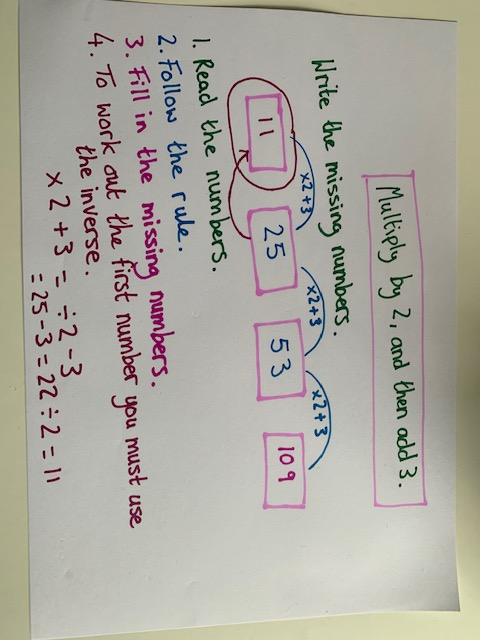 Multiply by 2, and then add 3.
Write the missing numbers.
×2+3 ×2+3 ×2+3
11 25 53 109
1. Read the numbers.
2. Follow the rule.
3. Fill in the missing numbers.
4. To work out the first number you must use
the inverse.
× 2 + 3 = ÷ 2 - 3
= 25 - 3 = 22 ÷ 2 = 11